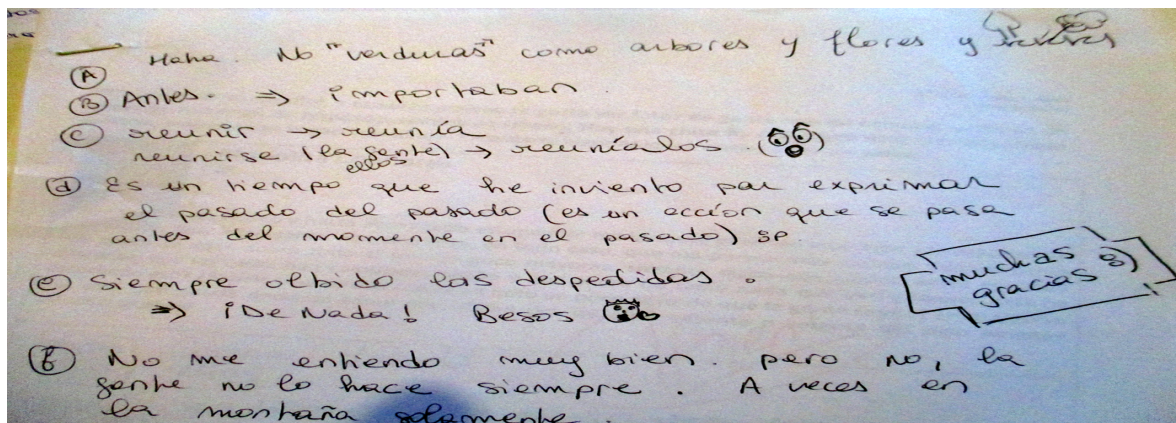 Haha. No "verduras" como arbores y flores y
(A)
(B) Antes. ⇒ importaban
(C) reunir → reunía
reunirse (la gente) → reuníalos.
ellos
(d) Es un tiempo que he inviento par exprimar
el pasado del pasado (es un accíon que se pasa
antes del momente en el pasado) sp
(e) Siempre olbido las despedidas.
⇒ ¡De Nada! Besos
muchas
gracias 8)
(f) No me entiendo muy bien. pero no, la
gente no lo hace siempre. A veces en
la montaña solamente.